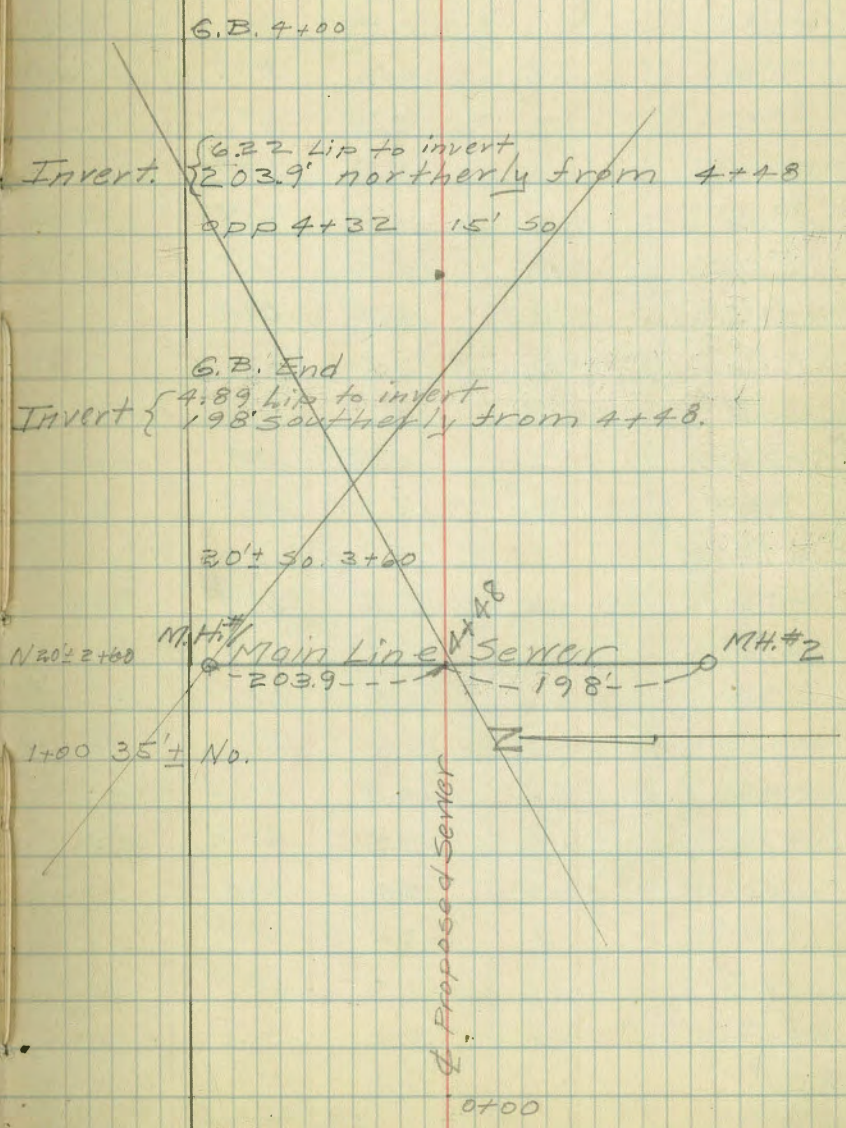 G.B. 4+00
6.22 Lip to invert
Invert. { 203.9' northerly from 4+48
opp 4+32 15' So
G.B. End
4.89 Lip to invert
Invert { 198' southerly from 4+48.
20'± So. 3+60
4+48
N 20'± 2+60 M.H.#1 Main Line Sewer MH.#2
203.9 198'
N
1+00 35'± No.
℄ Proposed Sewer
0+00